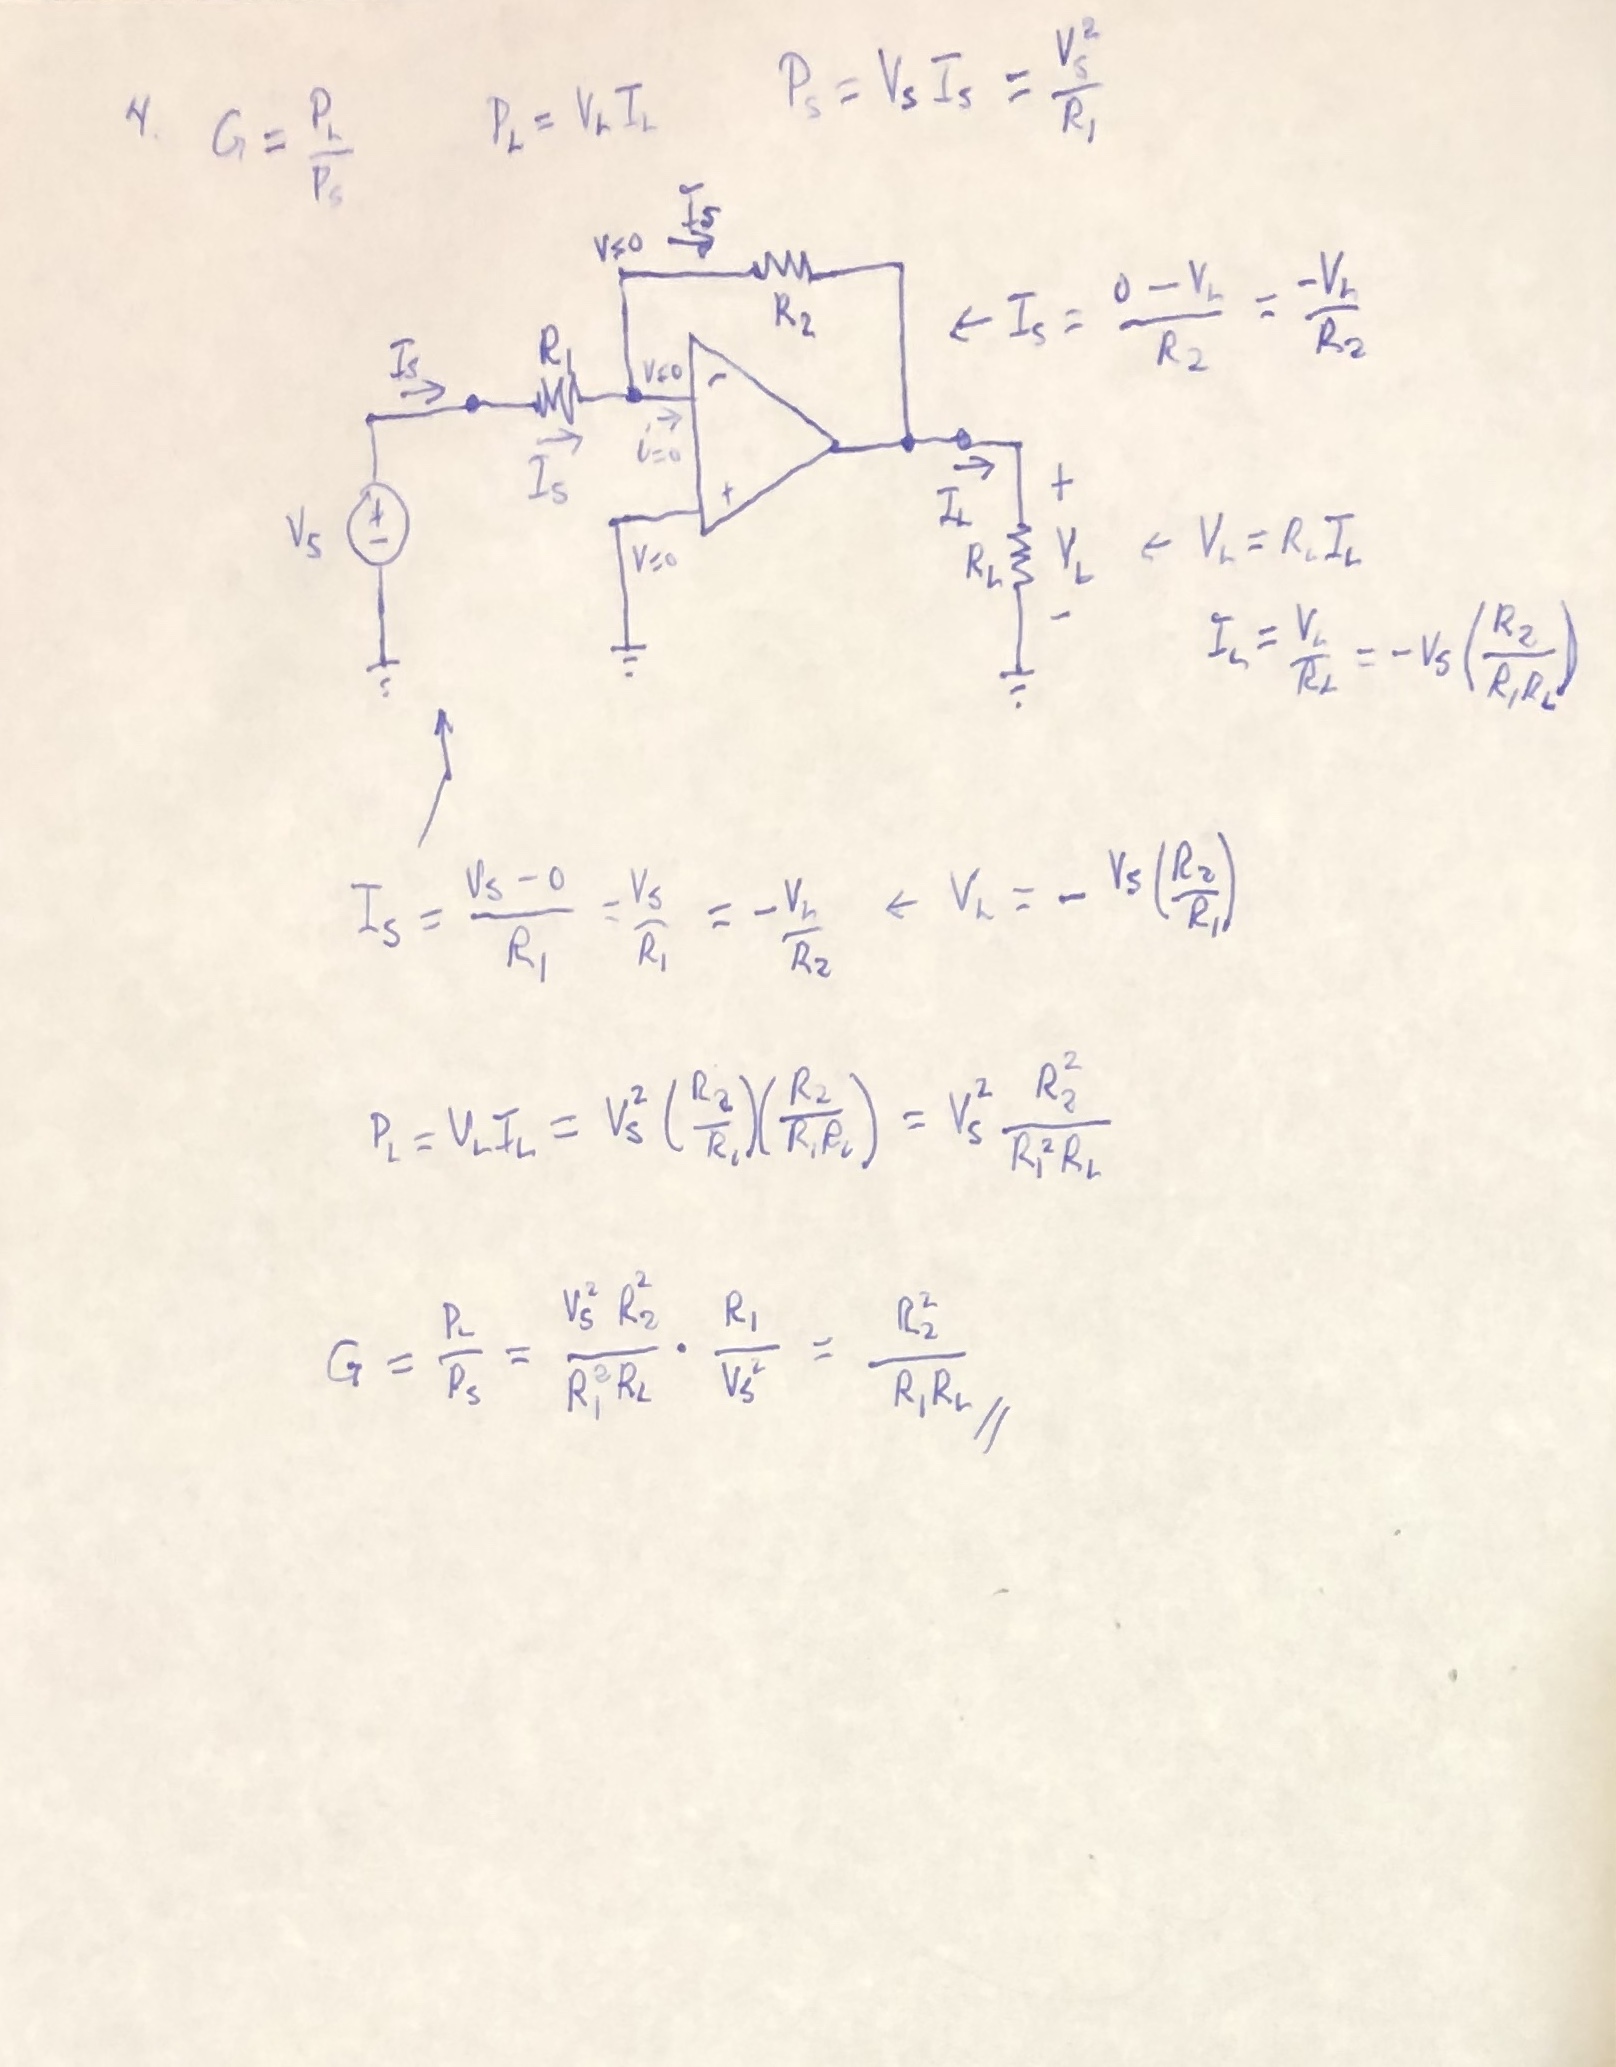 4. G = P_L / P_S    P_L = V_L I_L    P_S = V_S I_S = V_S² / R_1
I_S
V=0
R_2
← I_S = (0 - V_L) / R_2 = -V_L / R_2
I_S
R_1
V=0
-
I_S
i=0
+
V_S
+
-
V=0
I_L
+
R_L
V_L
-
← V_L = R_L I_L
I_L = V_L / R_L = -V_S (R_2 / R_1 R_L)
I_S = (V_S - 0) / R_1 = V_S / R_1 = -V_L / R_2 ← V_L = - V_S (R_2 / R_1)
P_L = V_L I_L = V_S² (R_2 / R_1)(R_2 / R_1 R_L) = V_S² R_2² / R_1² R_L
G = P_L / P_S = V_S² R_2² / R_1² R_L · R_1 / V_S² = R_2² / R_1 R_L //